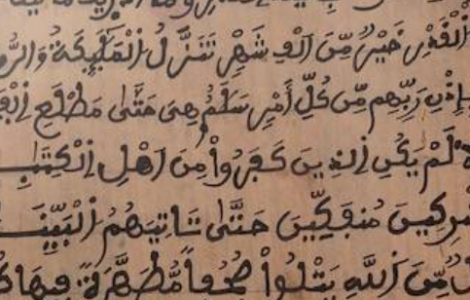 اَلْقَدْرِ خَيْرٌ مِّنَ اَلْفِ شَهْرٍ تَنَزَّلُ اُلْمَلَٰٓئِكَةُ وَالرُّو
بِإِذْنِ رَبِّهِم مِّن كُلِّ أَمْرٍ سَلَٰمٌ هِىَ حَتَّىٰ مَطْلَعِ اِلْفَ
لَمْ يَكُنِ اِلذِينَ كَفَرُواْ مِنَ اَهْلِ اِلْكِتَٰبِ
رِكِينَ مُنفَكِّينَ حَتَّىٰ تَاتِيَهُمُ اُلْبَيِّنَـ
مِّنَ اَللَّهِ يَتْلُواْ صُحُفاً مُّطَهَّرَةً فِيهَا